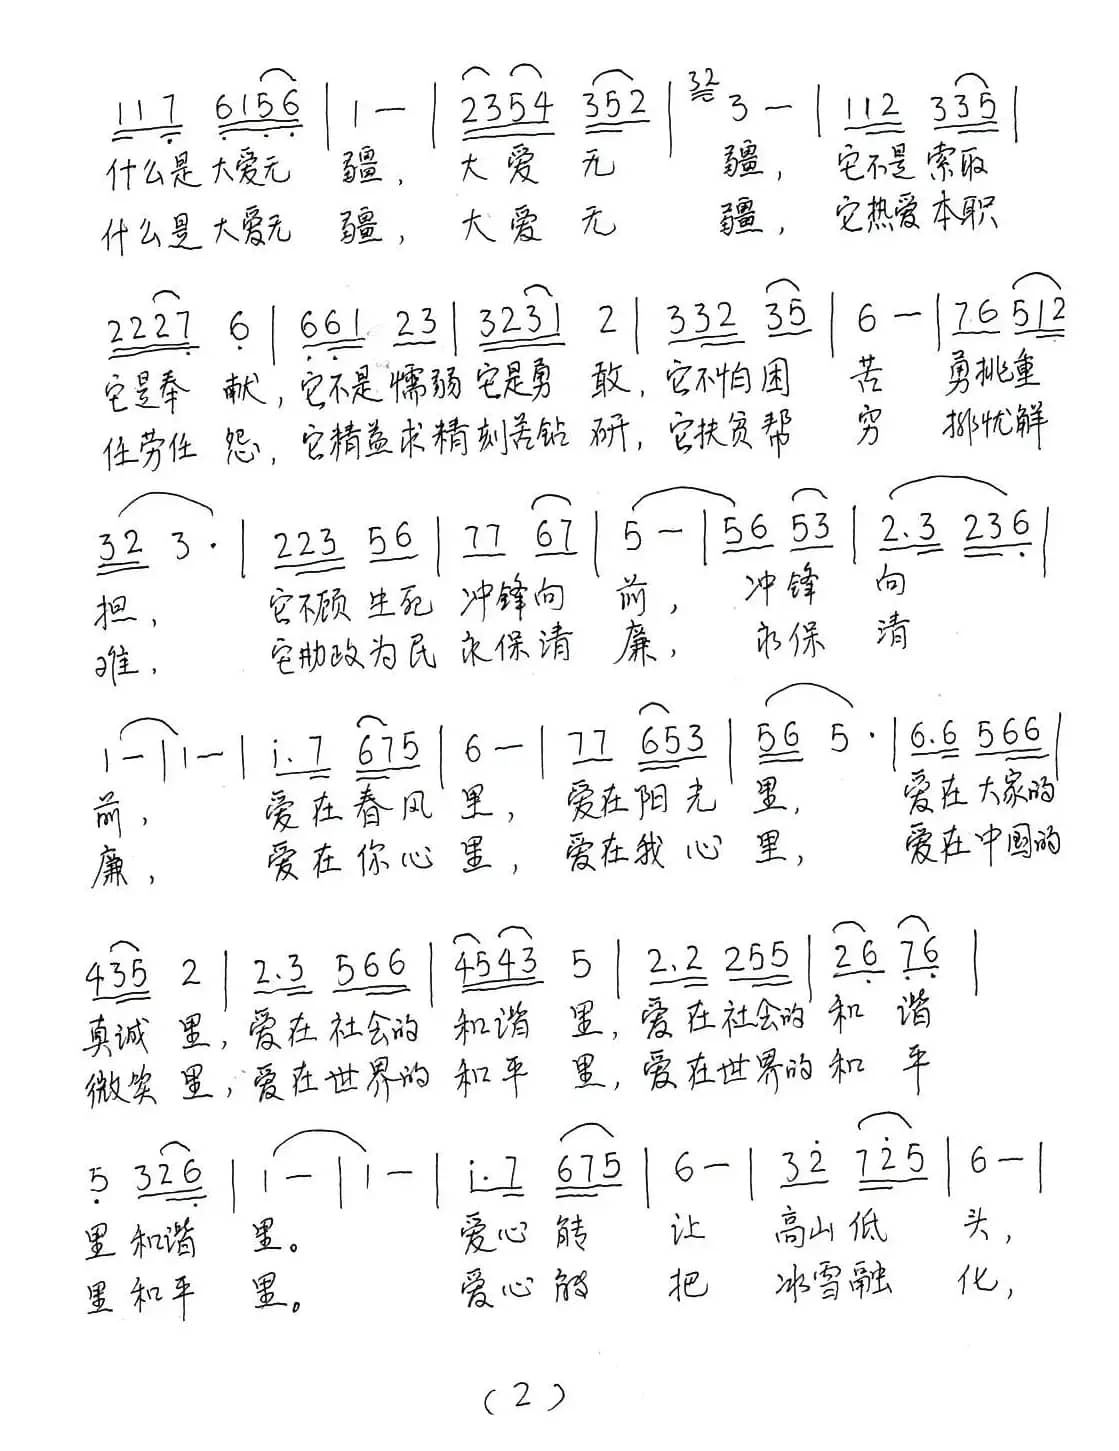 117 6156 | 1 — | 2354 352 | 32 3 — | 112 335 |
什么是大爱无 疆, 大爱 无 疆, 它不是索取
什么是大爱无 疆, 大爱 无 疆, 它热爱本职
2227 6 | 661 23 | 3231 2 | 332 35 | 6 — | 76 512
它是奉 献, 它不是懦弱它是勇 敢, 它不怕困 苦 勇挑重
任劳任 怨, 它精益求精刻苦钻 研, 它扶贫帮 穷 排忧解
32 3· | 223 56 | 77 67 | 5 — | 56 53 | 2.3 236 |
担, 它不顾生死 冲锋向 前, 冲锋 向
难, 它勤政为民 永保清 廉, 永保 清
1 — | 1 — | i.7 675 | 6 — | 77 653 | 56 5· | 6.6 566 |
前, 爱在春风 里, 爱在阳光 里, 爱在大家的
廉, 爱在你心 里, 爱在我心 里, 爱在中国的
435 2 | 2.3 566 | 4543 5 | 2.2 255 | 26 76 |
真诚 里, 爱在社会的 和谐 里, 爱在社会的 和 谐
微笑 里, 爱在世界的 和平 里, 爱在世界的 和 平
5 326 | 1 — | 1 — | i.7 675 | 6 — | 32 725 | 6 — |
里 和谐 里。 爱心 能 让 高山低 头,
里 和平 里。 爱心 能 把 冰雪融 化,
(2)